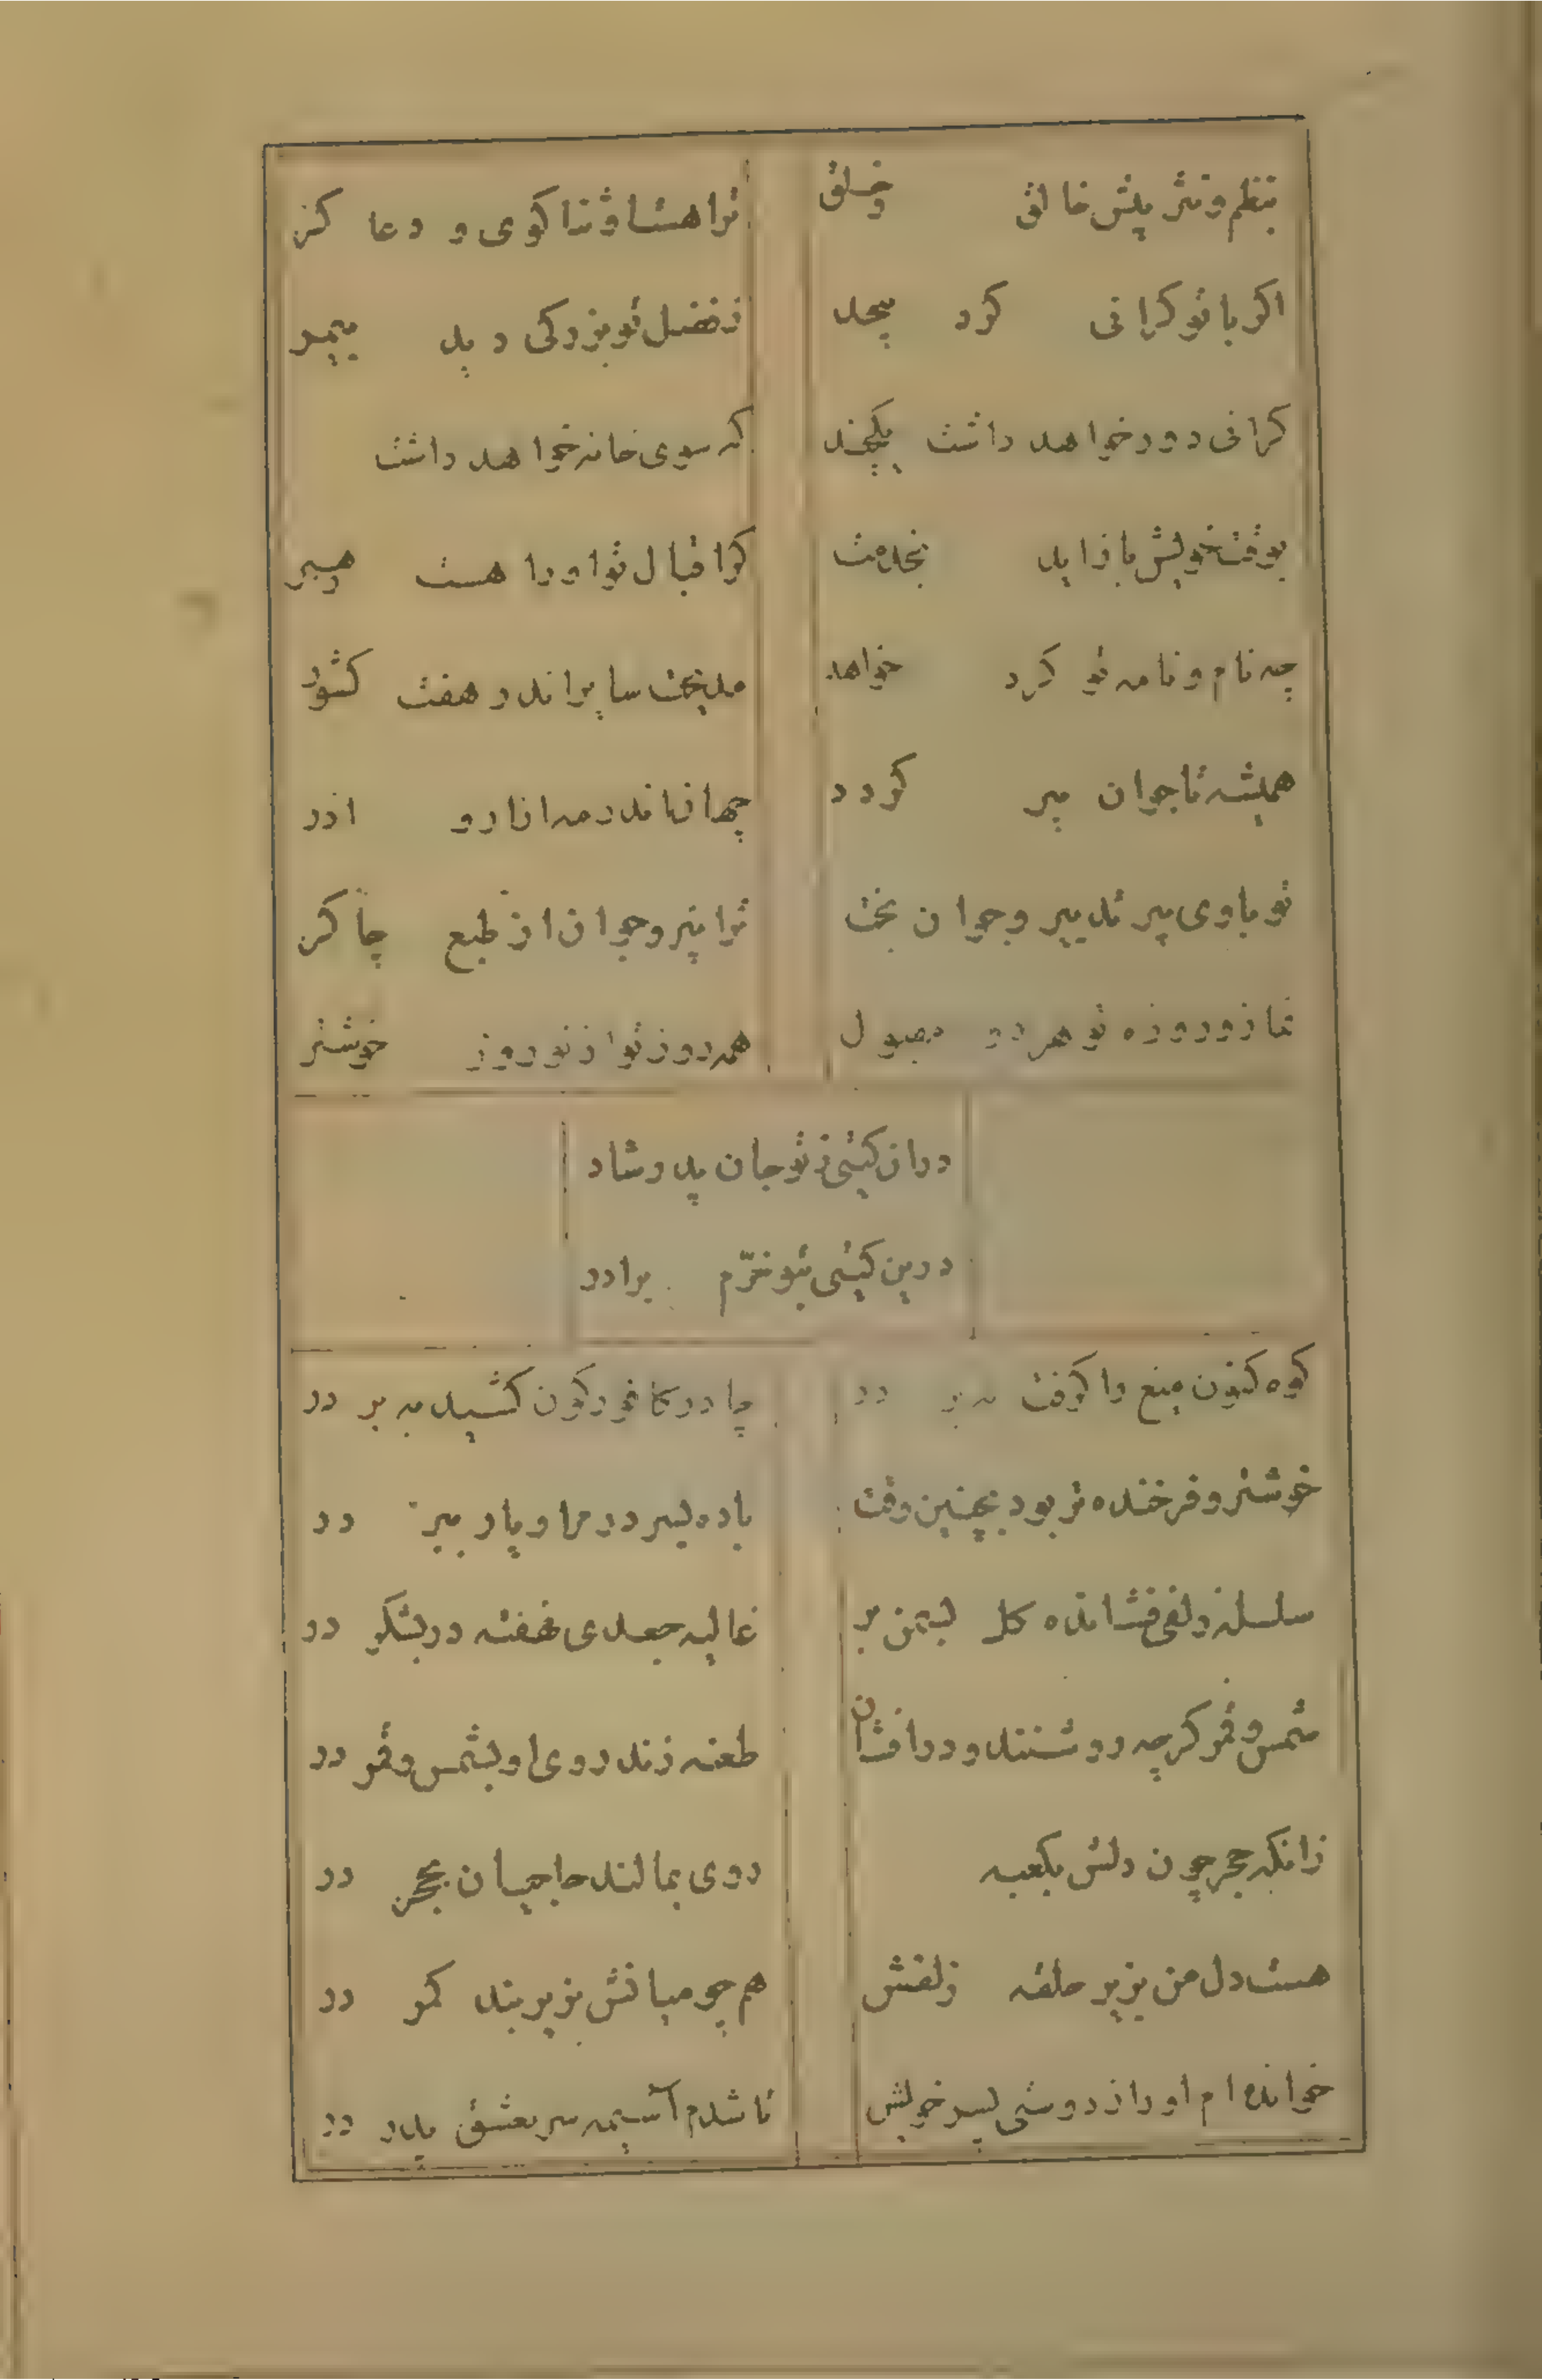 بنظم و نثر پیش خالق و خلق
ترا هست او ثنا کوی و دعا کر
اکر با تو کرانی کرد بیحد
ز فضل تو بزرکی دید بیمر
کرانی دور خواهد داشت یکچند
که سوی خانه خواهد داشت
بوقت خویش باز اید بخدمت
کر اقبال تو او را هست رهبر
چه نام و نامه تو کرد خواهد
مدیحت سایر اندر هفت کشور
همیشه تا جوان پیر کردد
جهان اندر مه اذار و اذر
تو باوی پیر تدبیر و جوان بخت
ترا پیر و جوان از طبع چاکر
نماز و روزه تو هر دو مقبول
همه روز تو از نوروز خوشتر
در ان کیتی ز تو جان پدر شاد
درین کیتی بتو خرّم برادر
کوه کنون میغ را کرفت به بر در
چادر کافورکون کشید به بر در
خوشتر و فرخنده تر بود بچنین وقت
باده بسر در مرا و یار ببر در
سلسله زلفی فشانده کل بسمن بر
غالیه جعدی نهفته در بشکر در
شمس و قمر کرچه روشنند و درافشان
طعنه زند روی او بشمس و قمر در
زانکه حجر چون دلش بکعبه
روی بمالند حاجیان بحجر در
هست دل من بزیر حلقه زلفش
هم چو میانش بزیر بند کمر در
خوانده ام او را ز دوستی پسر خویش
تا شدم آسیمه سر بعشق پدر در